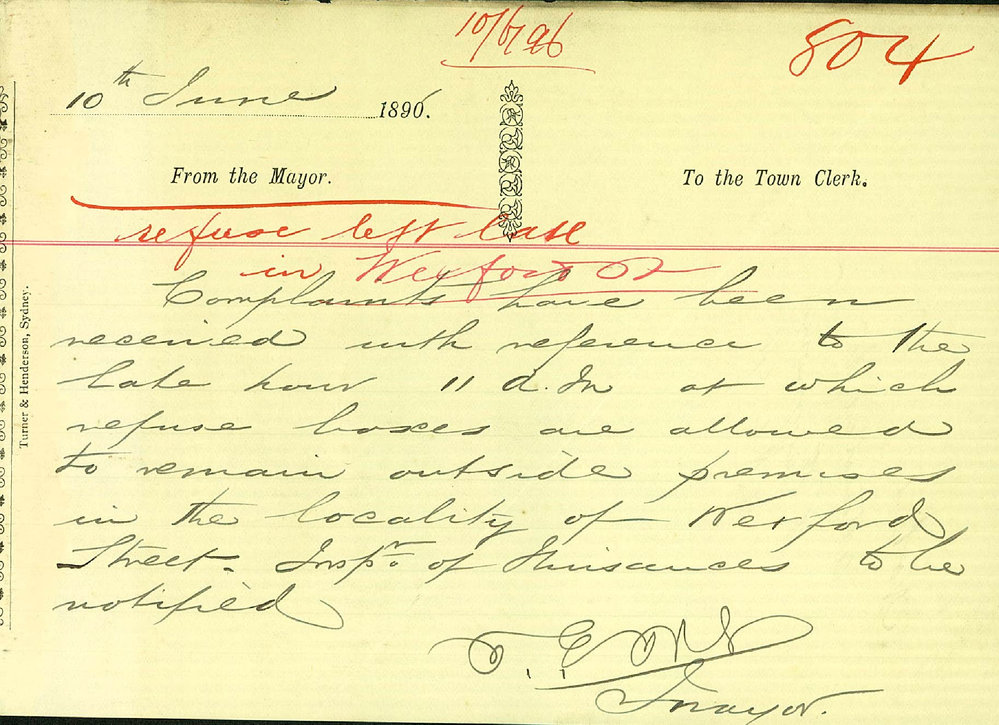 10/6/96
804
10th June 1896.
From the Mayor.
To the Town Clerk.
refuse left late
in Wexford St
Complaints have been
received with reference to the
late hour 11 a.m at which
refuse boxes are allowed
to remain outside premises
in the locality of Wexford
Street. Inspr. of Nuisances to be
notified
Mayor.
Turner & Henderson, Sydney.